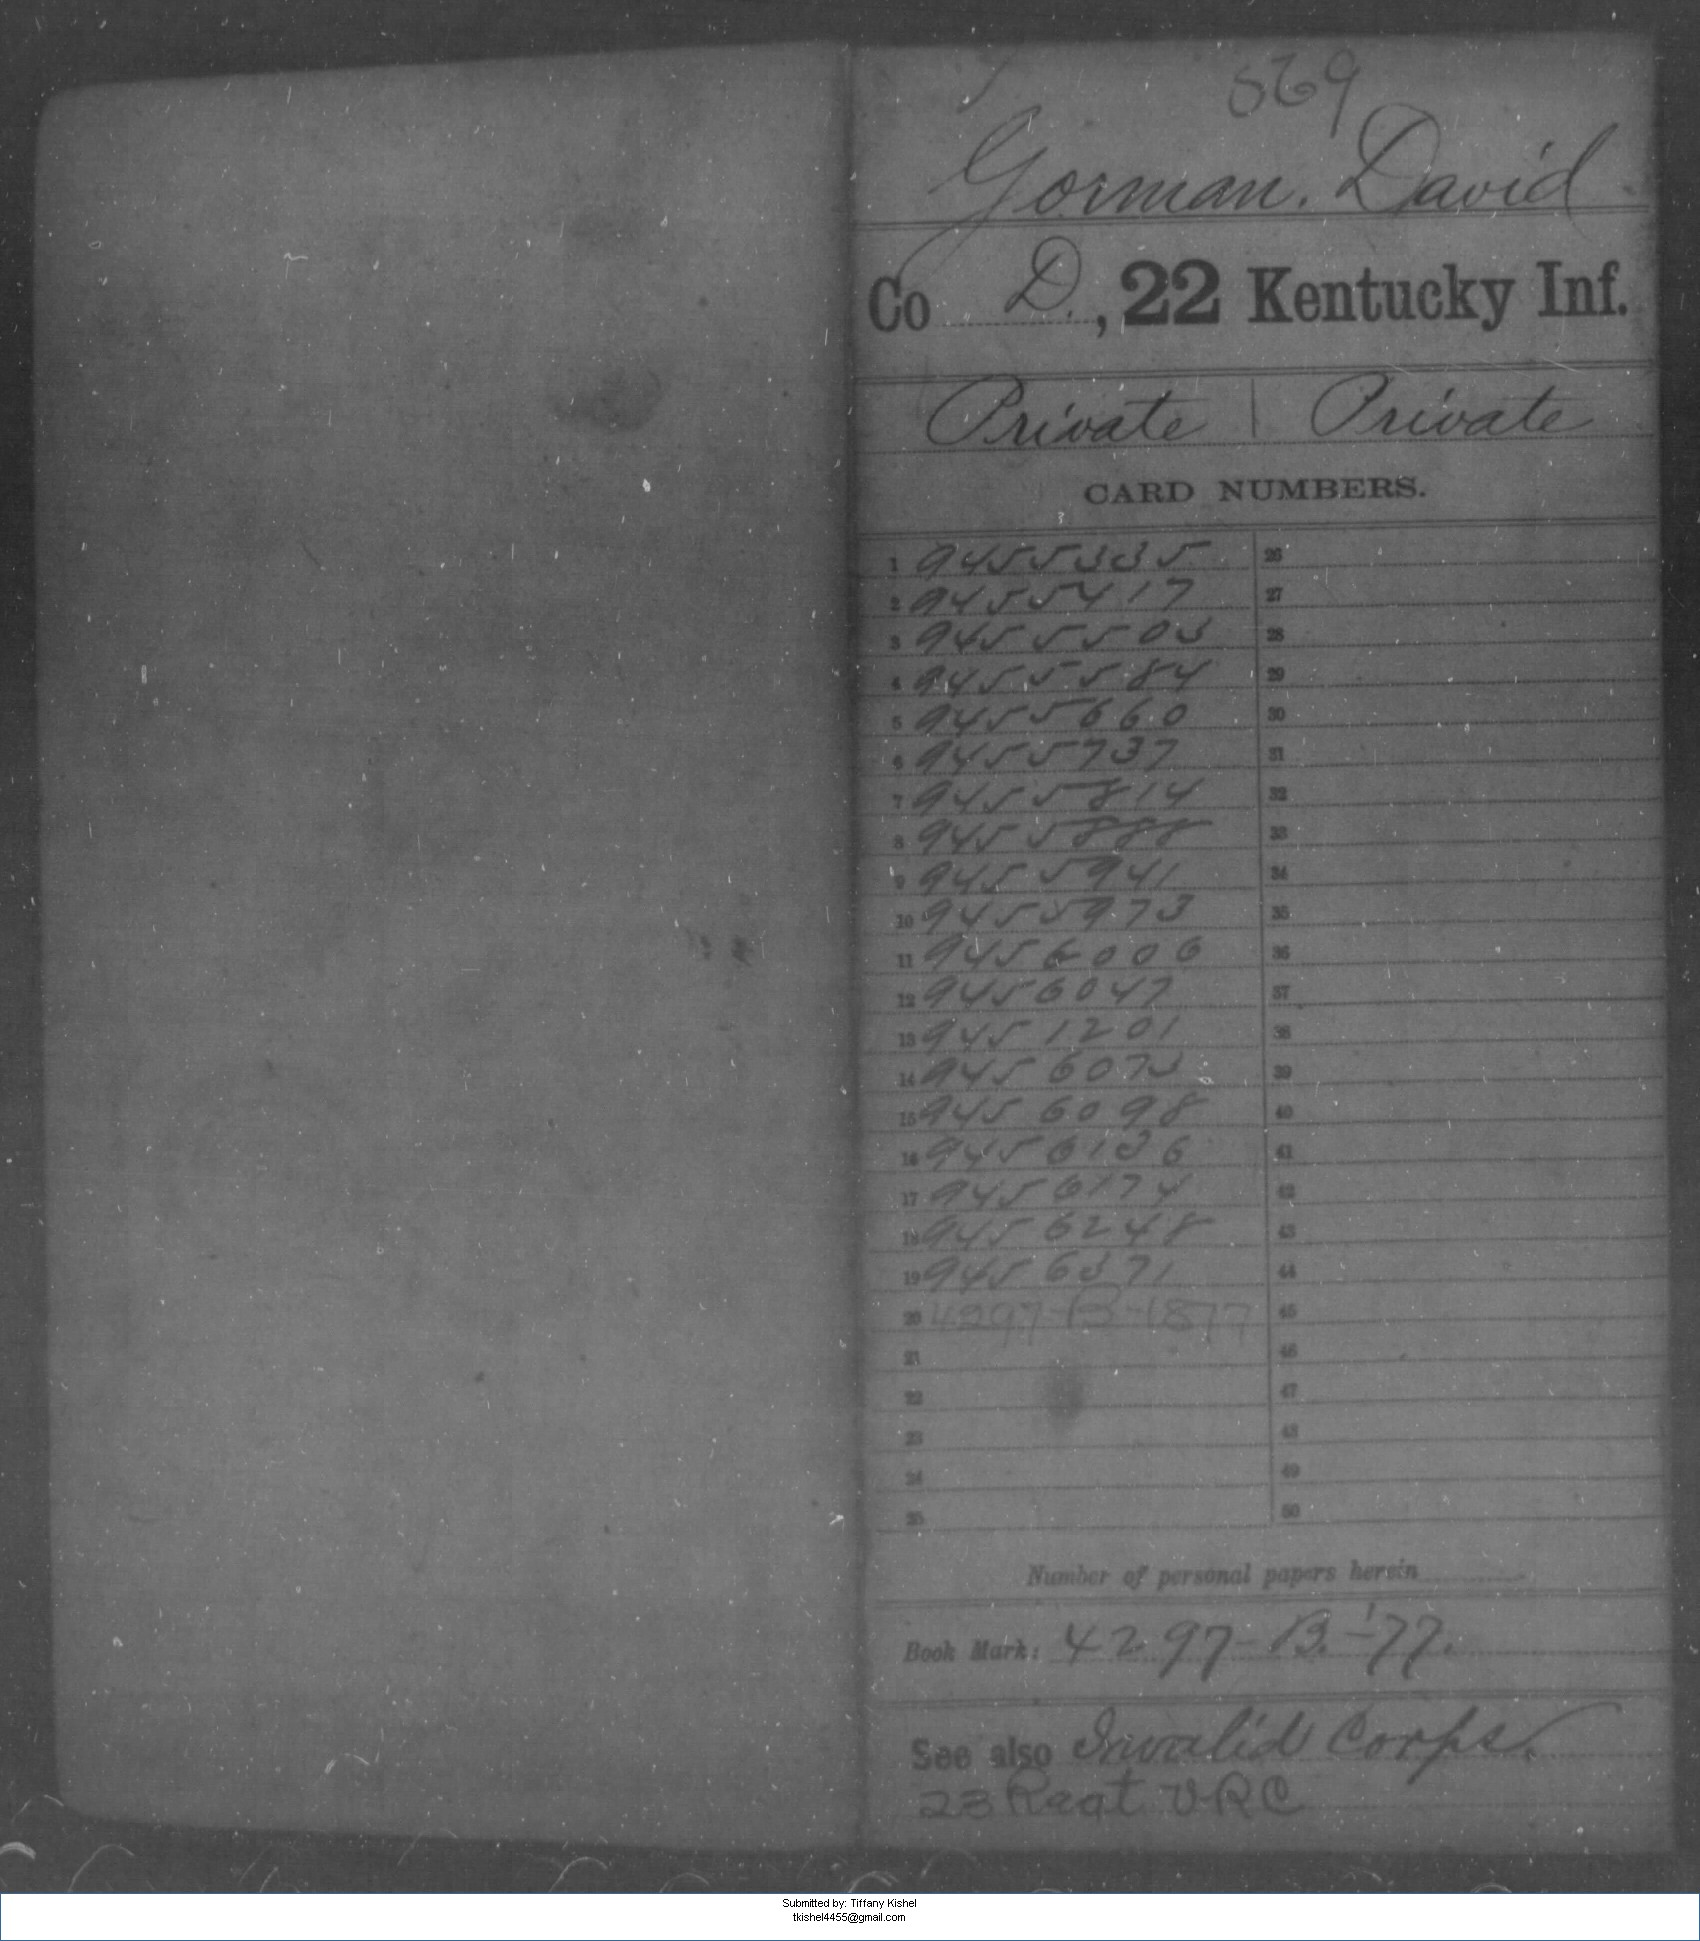 569
Gorman, David
Co D., 22 Kentucky Inf.
Private | Private
CARD NUMBERS.
1 9455335 26
2 9455417 27
3 9455503 28
4 9455584 29
5 9455660 30
6 9455737 31
7 9455814 32
8 9455888 33
9 9455941 34
10 9455973 35
11 9456006 36
12 9456047 37
13 9451201 38
14 9456073 39
15 9456098 40
16 9456136 41
17 9456174 42
18 9456248 43
19 9456371 44
20 4297-B-1877 45
21 46
22 47
23 48
24 49
25 50
Number of personal papers herein
Book Mark: 4297-B.-'77.
See also Invalid Corps.
23 Regt VRC
Submitted by: Tiffany Kishel
tkishel4455@gmail.com